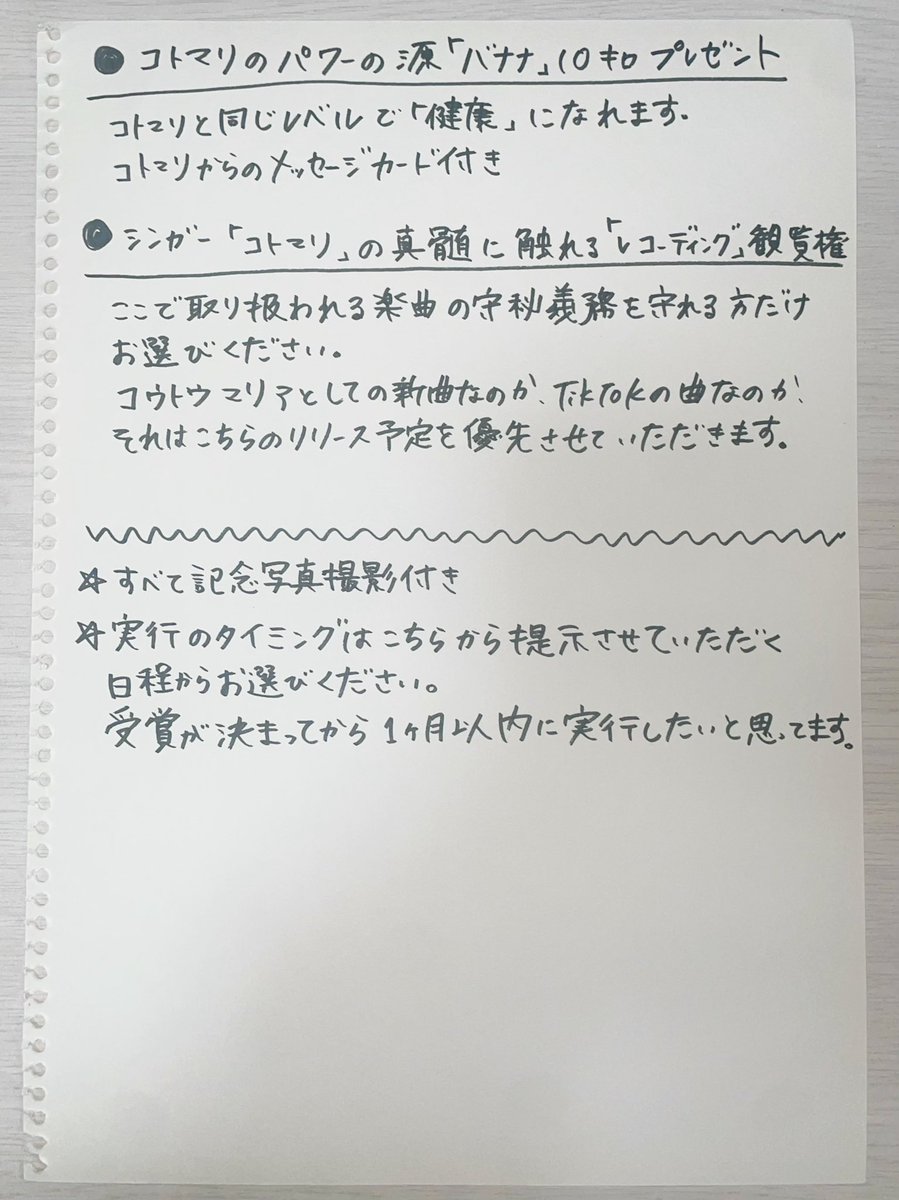 ●コトマリのパワーの源「バナナ」10キロプレゼント
コトマリと同じレベルで「健康」になれます。
コトマリからのメッセージカード付き
●シンガー「コトマリ」の真髄に触れる「レコーディング」観覧権
ここで取り扱われる楽曲の守秘義務を守れる方だけ
お選びください。
コウトウマリアとしての新曲なのか、TikTokの曲なのか、
それはこちらのリリース予定を優先させていただきます。
☆すべて記念写真撮影付き
☆実行のタイミングはこちらから提示させていただく
日程からお選びください。
受賞が決まってから1ヶ月以内に実行したいと思ってます。